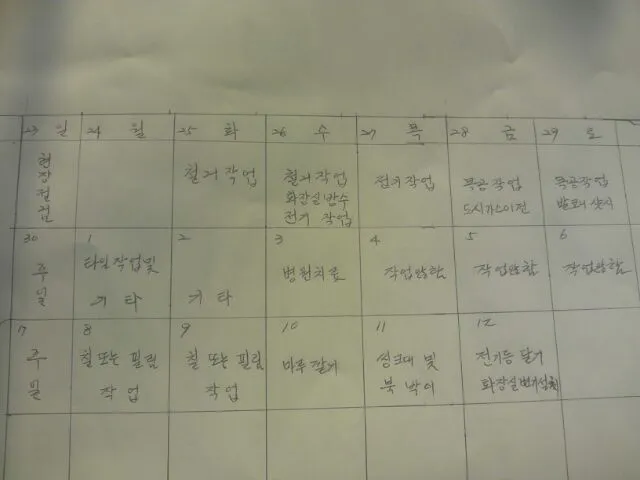 23 일 24 월 25 화 26 수 27 목 28 금 29 토
현장점검
철거작업
철거작업
화장실방수
전기 작업
전기작업
목공작업
도시가스이전
목공작업
발코니 샷시
30 1 2 3 4 5 6
주일
타일작업및
기타
기타
병원치료
작업않함
작업않함
작업않함
7 8 9 10 11 12
주일
칠 또는 필림
작업
칠 또는 필림
작업
마루 깔기
싱크대 및
북 박이
전기등 달기
화장실변기설치